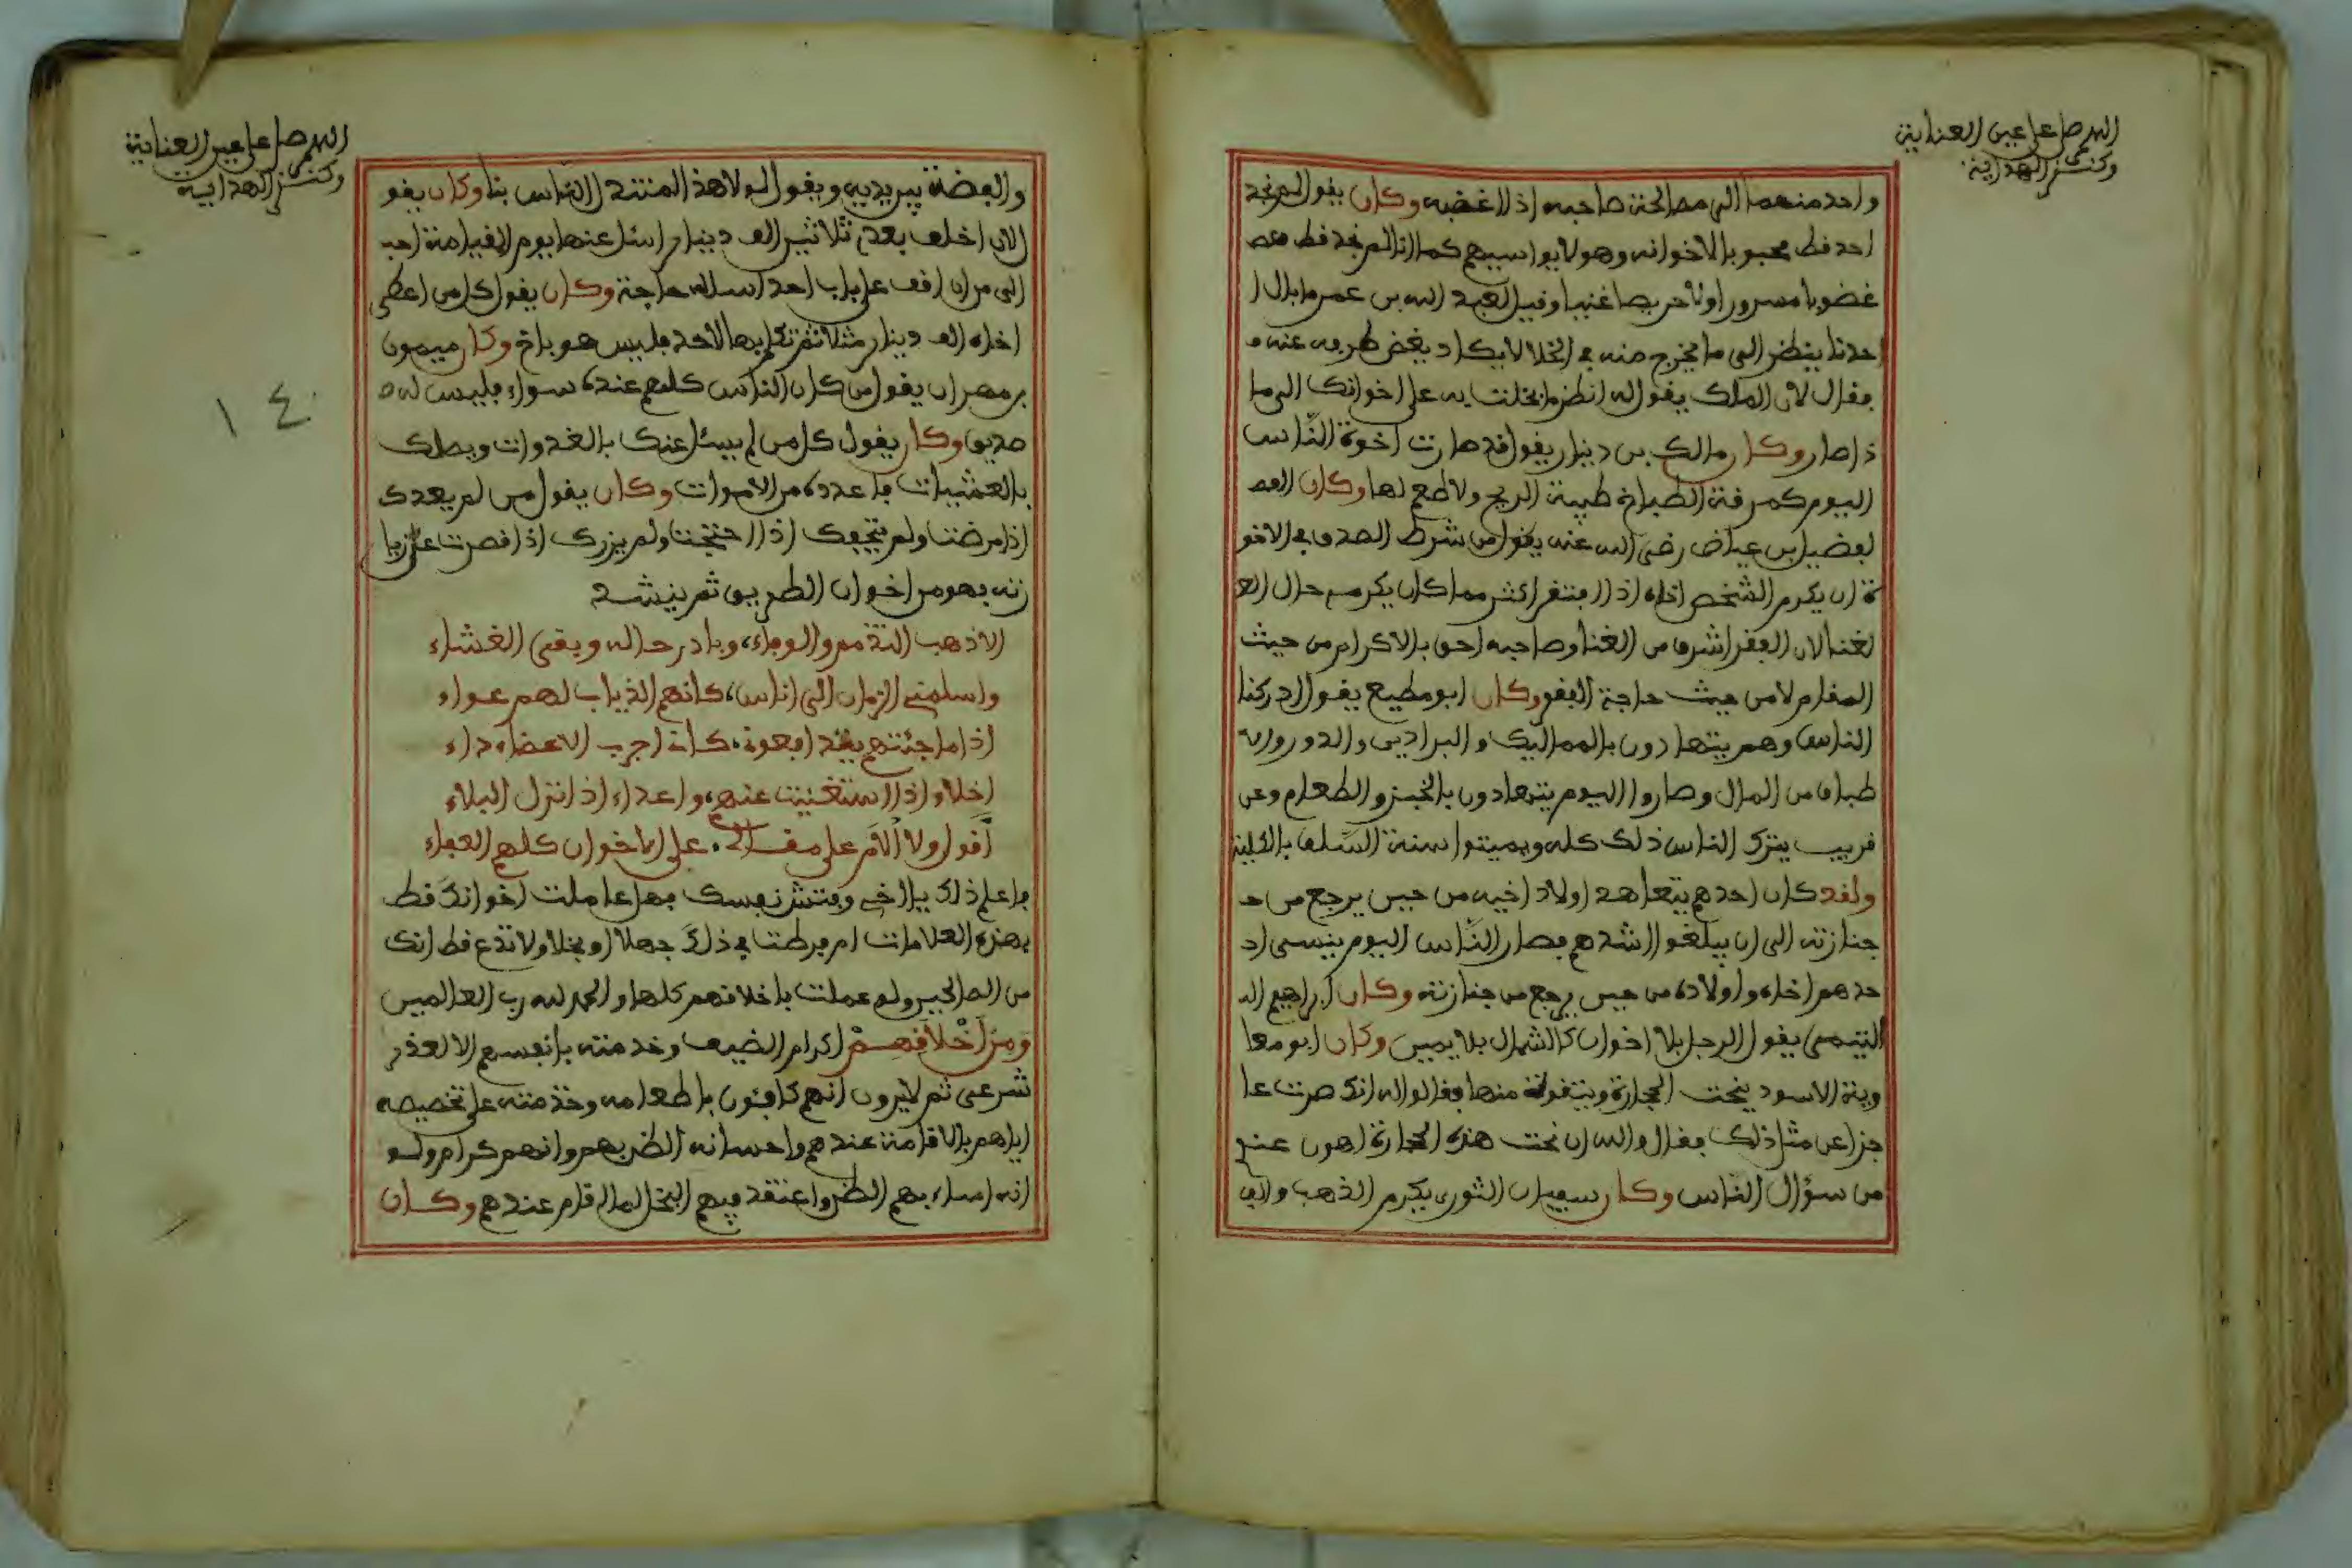 اللهم صل على عين العناية
وكنز الهداية
واحد منهما الى مصالحة صاحبه اذا اغضبه وكان يقول لم نجد
احد قط محبوبا لاخوانه وهو لا يواسيهم كما اننا لم نجد قط
غضوبا مسرورا ولا حريصا غنيا وقيل لعبد الله بن عمر ما بال ا
حدنا ينظر الى ما يخرج منه في الخلا لا يكاد يغض طرفه عنه
فقال لان الملك يقول له انظر ما بخلت به على اخوانك الى ما
ذا صار وكان مالك بن دينار يقول قد صارت اخوة الناس
اليوم كمرقة الطباخ طيبة الريح ولا طعم لها وكان
لفضيل بن عياض رضي الله عنه يقول من شرط الصدق في الاخو
ة ان يكرم الشخص اخاه اذا افتقر اكثر مما كان يكرمه حال ال
لغنا لان الفقر اشرف من الغنا وصاحبه احق بالاكرام من حيث
المقام لا من حيث حاجة الفقر وكان ابو مطيع يقول ادركنا
الناس وهم يتهادون بالمماليك والبراذين والدور والا
طباق من المال وصاروا اليوم يتهادون بالخبز والطعام وعن
قريب يترك الناس ذلك كله ويميتوا سنة السلف بالكلية
ولقد كان احدهم يتعاهد اولاد اخيه من حين يرجع من
جنازته الى ان يبلغوا اشدهم فصار الناس اليوم ينسى ا
حدهم اخاه واولاده من حين يرجع من جنازته وكان ابراهيم ال
التيمي يقول الرجل بلا اخوان كالشمال بلا يمين وكان ابو معا
وية الاسود ينحت الحجارة ويتقوت منها فقالوا له انك صرت عا
جزا عن مثل ذلك فقال والله ان نحت هذه الحجارة اهون عندي
من سؤال الناس وكان سفيان الثوري يكرم الذهب وال
اللهم صل على عين العناية
وكنز الهداية
١٤
والفضة بين يديه ويقول لولا هذا لتمندل الناس بنا وكان يقو
لان اخلف بعدي ثلاثين الف دينار اسئل عنها يوم القيامة احب
الى من ان اقف على باب احد اسئله حاجة وكان يقول كل من اعطى
اخاه الف دينار مثلا ثم تكلم بها لاحد فليس هو باخ وكان ميمون
بن مهران يقول من كان الناس كلهم عنده سواء فليس له
صديق وكان يقول كل من لم يسئل عنك بالغدوات ويصلك
بالعشيات فاعدده من الاموات وكان يقول من لم يعدك
اذا مرضت ولم يتحفك اذا احتجت ولم يزرك اذا قصرت على زيا
رته فهو من اخوان الطريق ثم ينشد
الا ذهب التذمم والوفاء، وباد رجاله وبقي الغثاء
واسلمني الزمان الى اناس، كانهم الذياب لهم عواء
اذا ما جئتهم يتدافعونى، كانى اجرب الاعضاء داء
اخلاء اذا استغنيت عنهم، واعداء اذا نزل البلاء
اقول ولا الام على مقالى. على الاخوان كلهم العفاء
فاعلم ذلك يا اخي وفتش نفسك فهل عاملت اخوانك قط
بهذه العلامات ام فرطت في ذلك جهلا او بخلا ولا تدع قط انك
من الصالحين ولو عملت باخلاقهم كلها والحمد لله رب العالمين
ومن اخلاقهم اكرام الضيف وخدمته بانفسهم الا لعذر
شرعى ثم لا يرون انهم كافئوه باطعامه وخدمته على تخصيصه
اياهم بالاقامة عندهم واحسانه الظن بهم وانهم كرام ولو
انه اساء بهم الظن واعتقد فيهم البخل لما اقام عندهم وكان